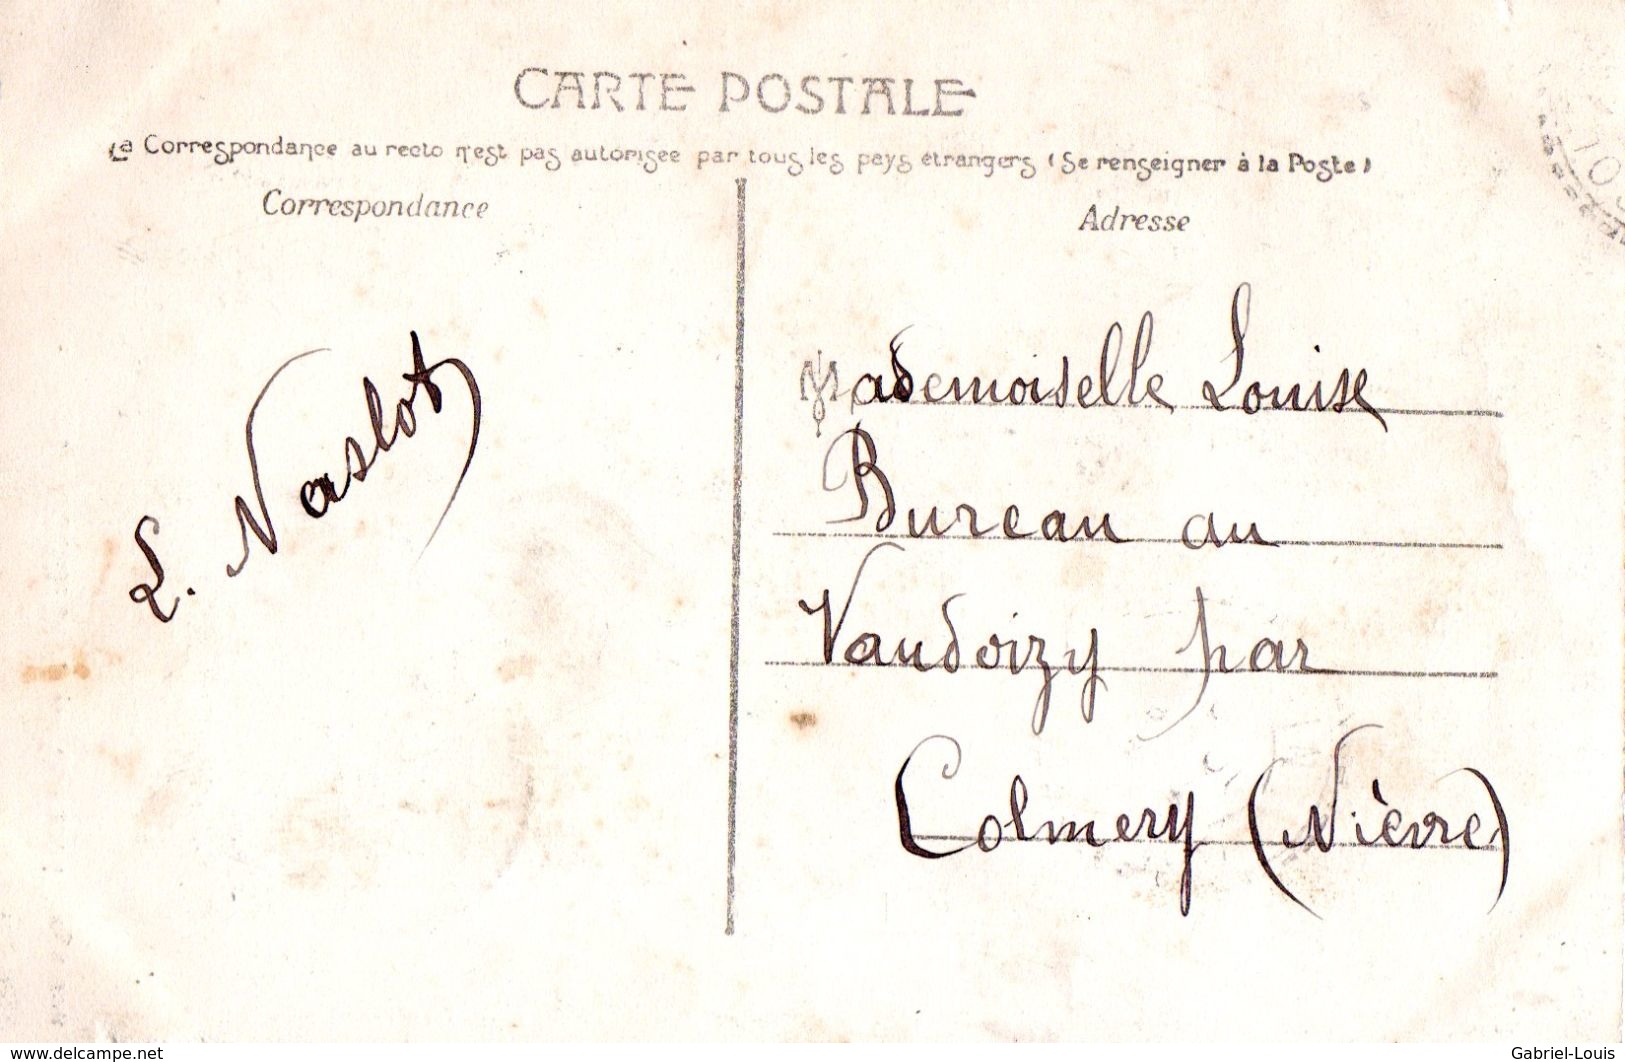 CARTE POSTALE
La Correspondance au recto n'est pas autorisée par tous les pays étrangers (Se renseigner à la Poste)
Correspondance
Adresse
L. Naslot
Mademoiselle Louise
Bureau au
Vaudoizy par
Colmery (Nièvre)
www.delcampe.net
Gabriel-Louis